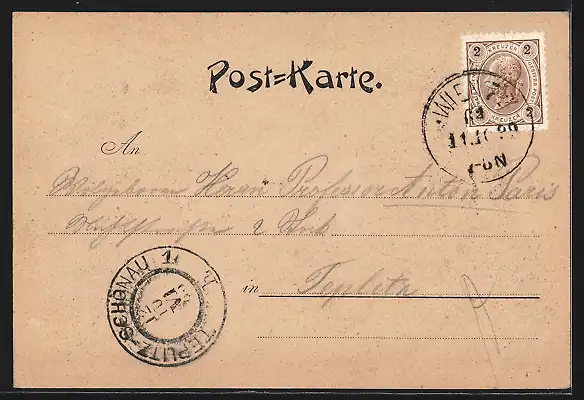 Post=Karte.
2 KREUZER 2
2 KREUZER 2
WIEN
11.10.99
An
Wohlgeboren Herrn Professor Anton Paris
2. Stock
in Teplitz
TEPLITZ-SCHÖNAU 1